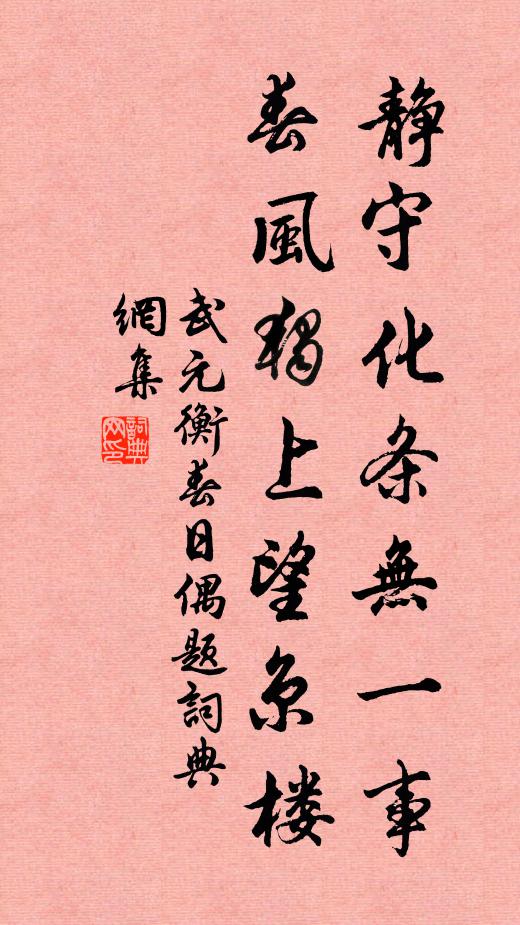 静守化条無一事
春風獨上望京楼
武元衡春日偶题詞典
網集
詞典
网印